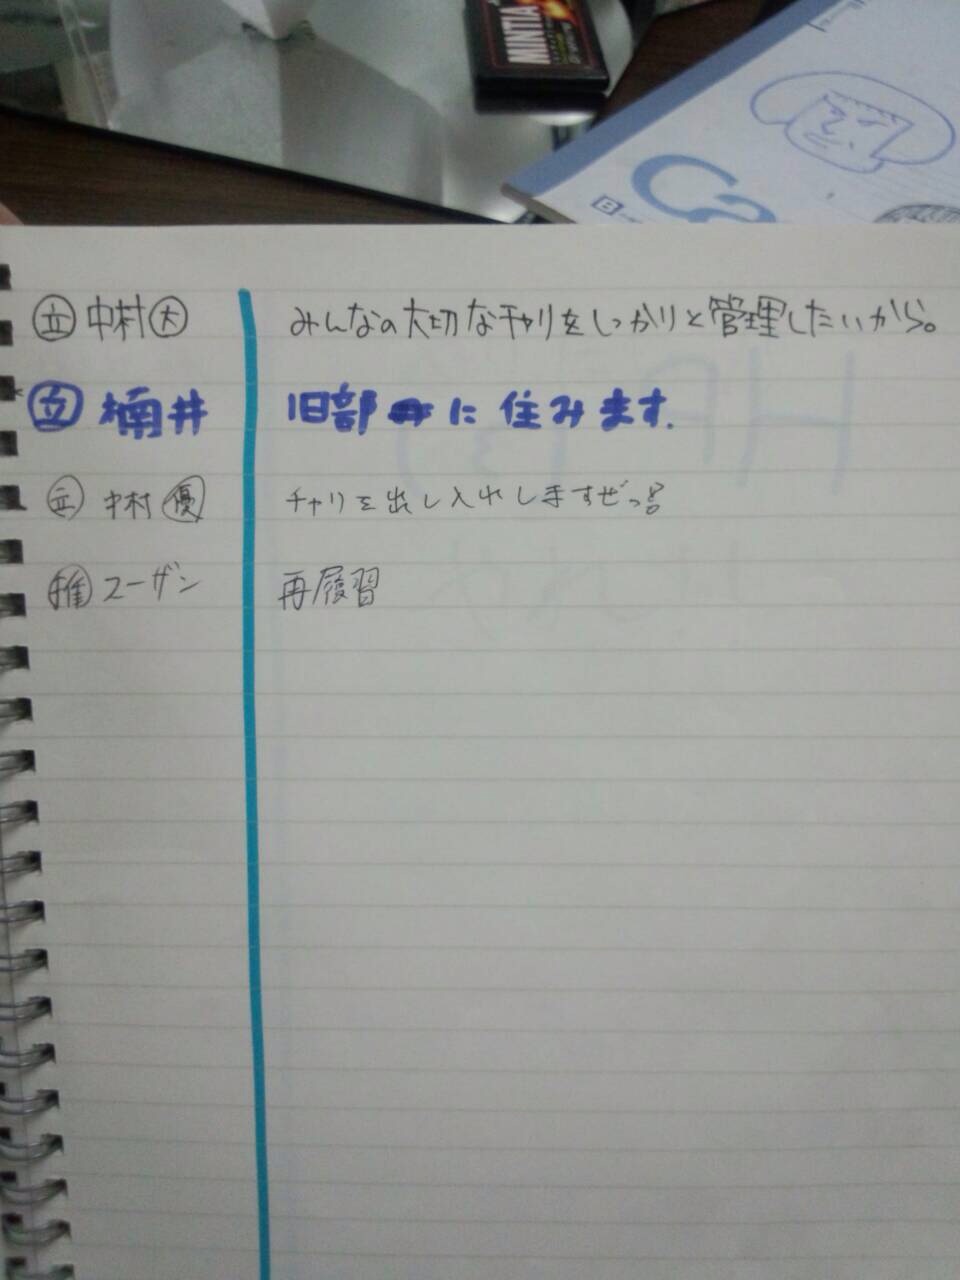 MINTIA
㊣立 中村 大 みんなの大切なチャリをしっかりと管理したいから。
立 楠井 旧部に住みます.
立 中村 優 チャリを出し入れしますぜっ!!
推 スーザン 再履習